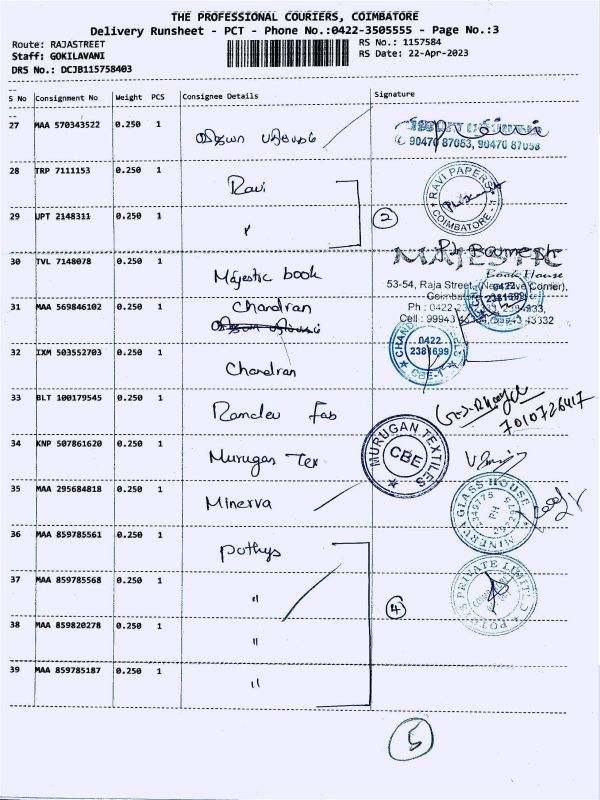 THE PROFESSIONAL COURIERS, COIMBATORE
Delivery Runsheet - PCT - Phone No.:0422-3505555 - Page No.:3
Route: RAJASTREET
RS No.: 1157584
Staff: GOKILAVANI
RS Date: 22-Apr-2023
DRS No.: DCJB115758403
S No Consignment No Weight PCS Consignee Details Signature
27 MAA 570343522 0.250 1
✆ 90470 87053, 90470 87058
28 TRP 7111153 0.250 1 Ravi
RAVI PAPERS
COIMBATORE - 1
29 UPT 2148311 0.250 1 "
2
30 TVL 7148078 0.250 1 Majestic book
MAJESTIC
Book House
53-54, Raja Street, Corner),
31 MAA 569846102 0.250 1 Chandran
0422
2381699
32 IXM 503552703 0.250 1 Chandran
0422
2381699
CBE-1
33 BLT 100179545 0.250 1 Ramdev Fab
7010726417
34 KNP 507861620 0.250 1 Murugan Tex
MURUGAN TEXTILES
CBE
35 MAA 295684818 0.250 1 Minerva
MINERVA GLASS HOUSE
PH
36 MAA 859785561 0.250 1 Pothys
PRIVATE LIMITED
37 MAA 859785568 0.250 1 "
4
38 MAA 859820278 0.250 1 "
39 MAA 859785187 0.250 1 "
5